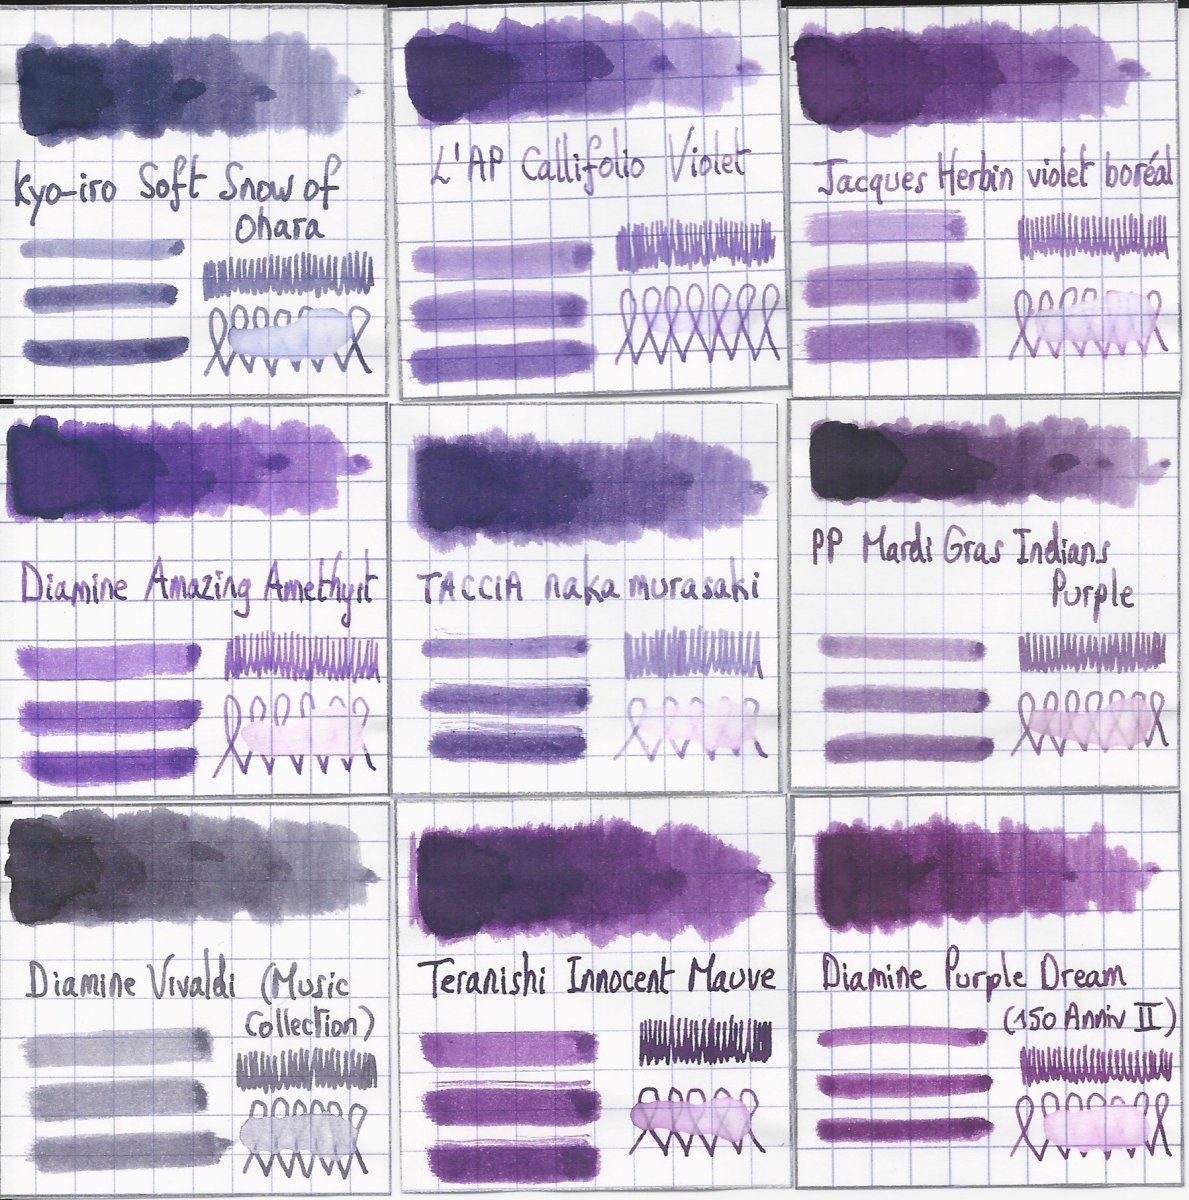 Kyo-iro Soft Snow of
Ohara
L'AP Callifolio Violet
Jacques Herbin violet boréal
Diamine Amazing Amethyst
TACCIA naka murasaki
PP Mardi Gras Indians
Purple
Diamine Vivaldi (Music
Collection)
Teranishi Innocent Mauve
Diamine Purple Dream
(150 Anniv II)